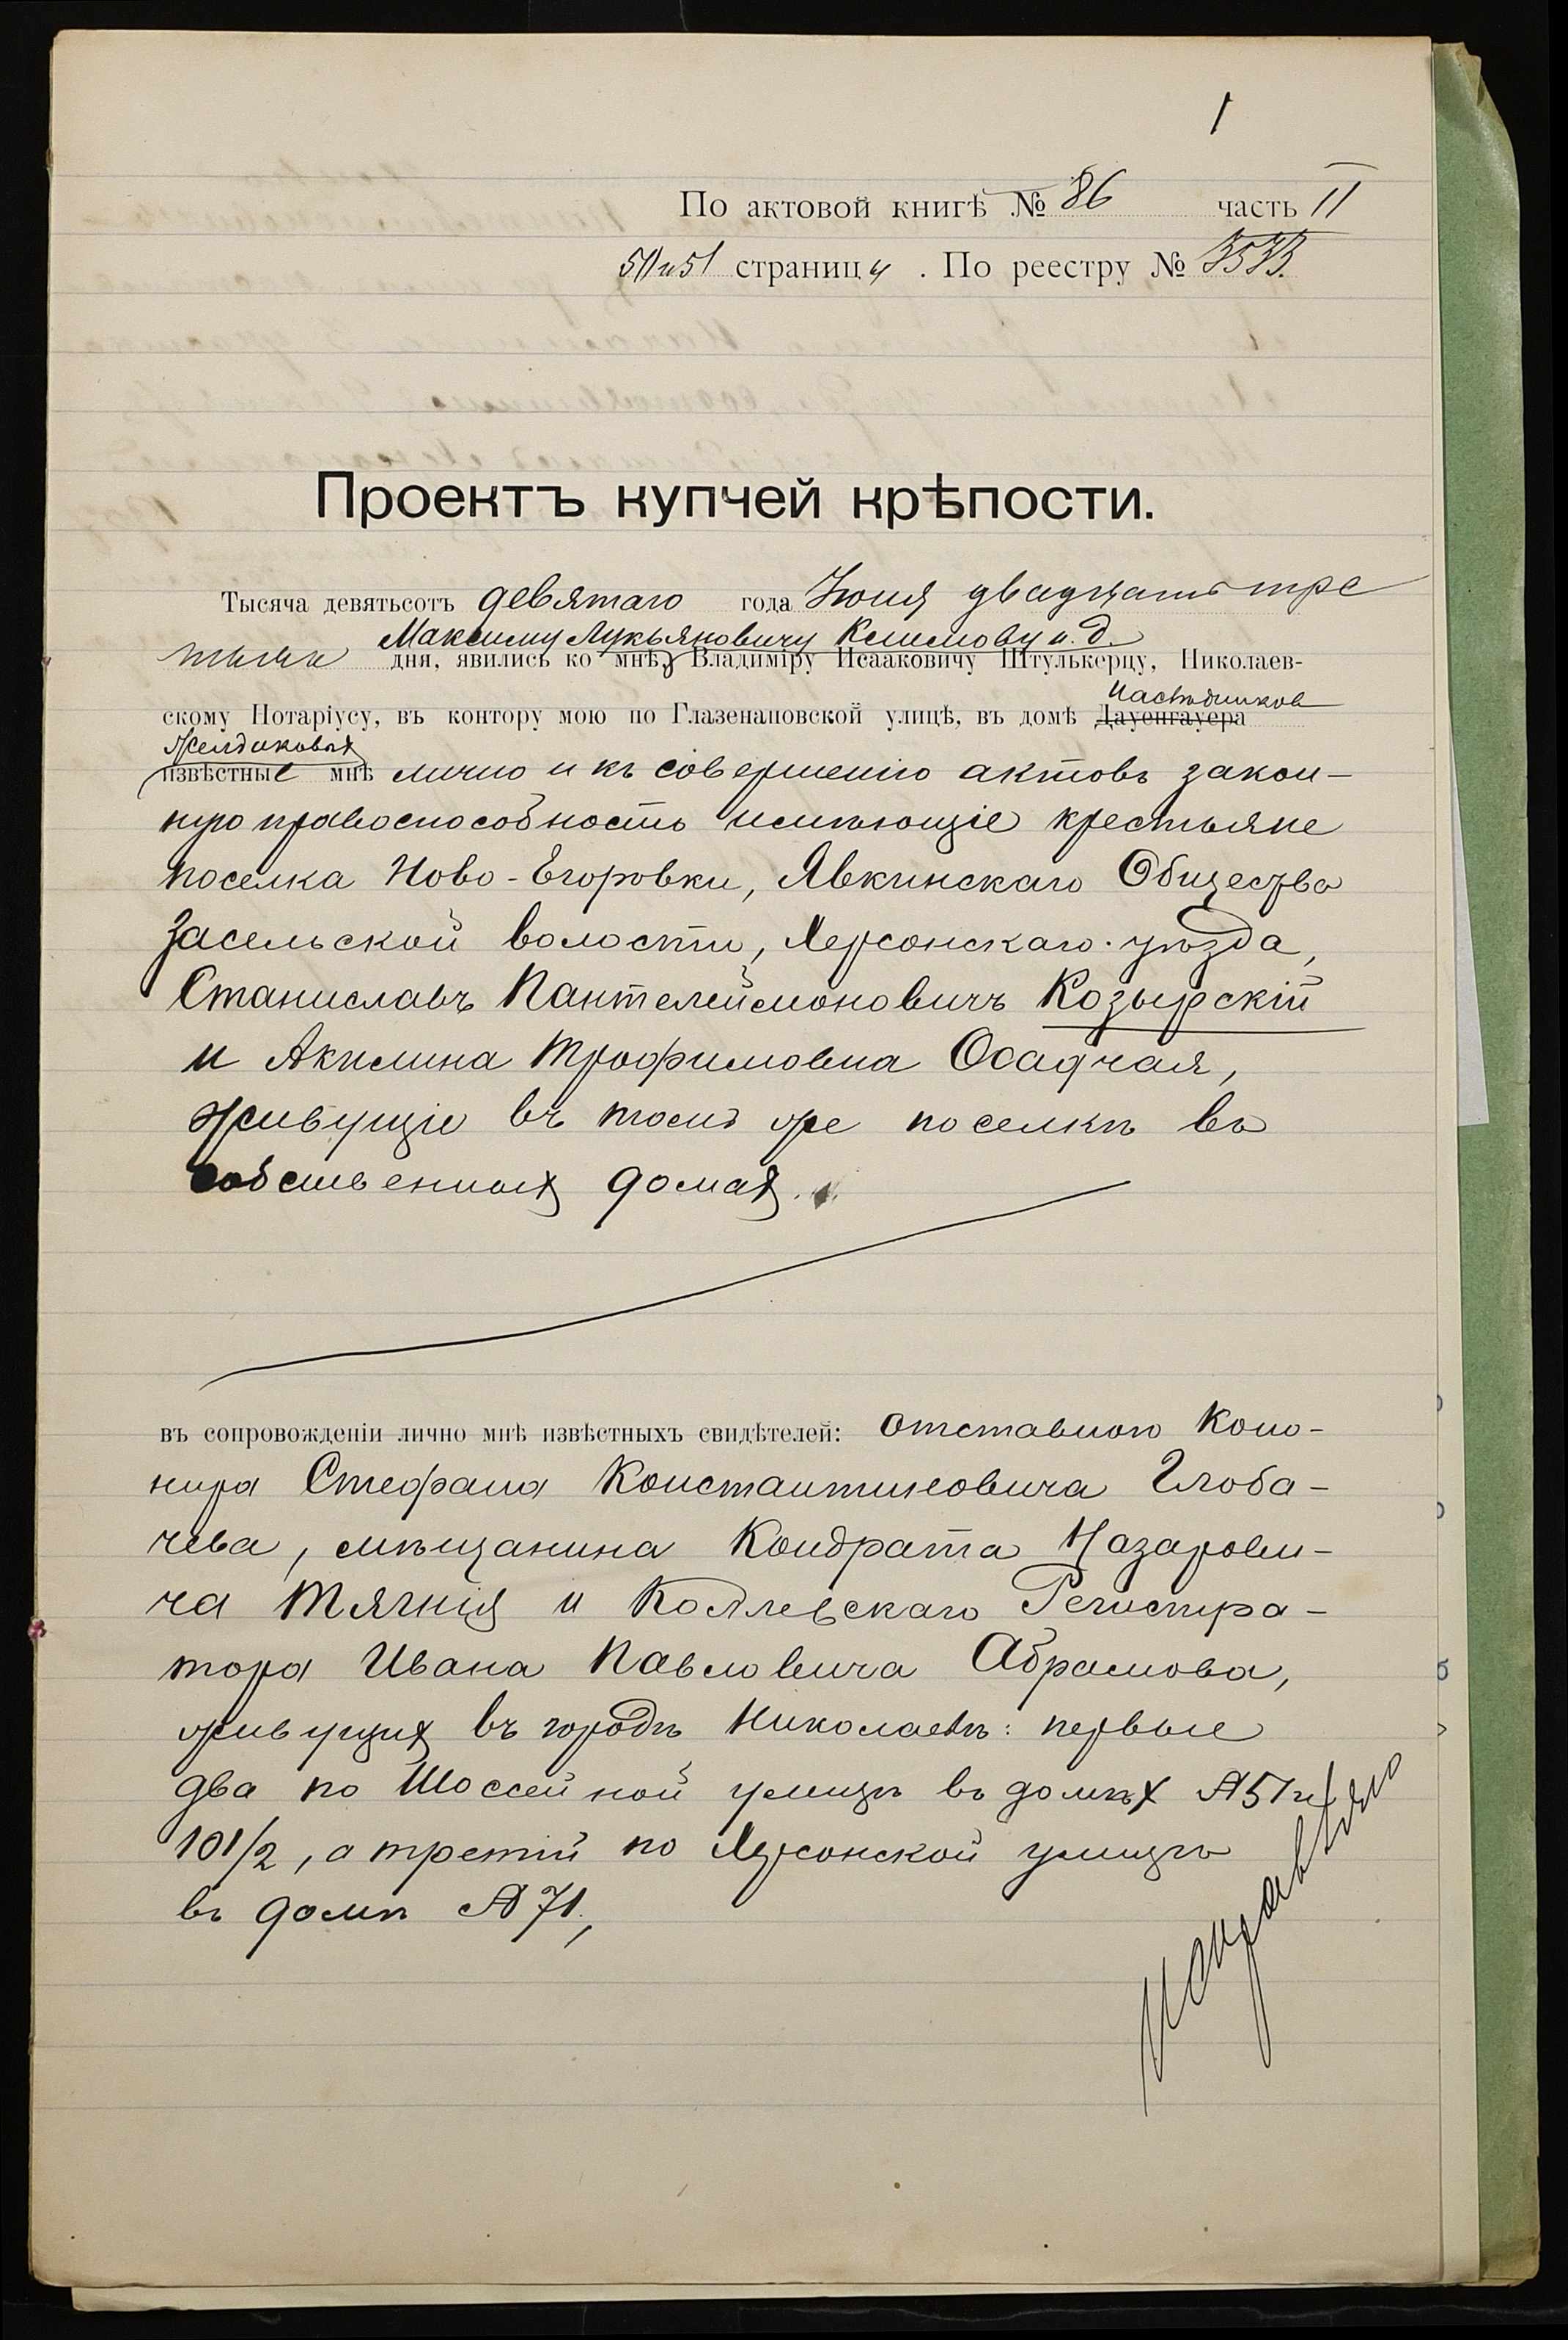 1
По актовой книгѣ № 86 часть II
50 и 51 страницы . По реестру № 3533.
Проектъ купчей крѣпости.
Тысяча девятьсотъ девятаго года Іюня двадцать тре
Максиму Лукьяновичу Климову и. д.
тьяго дня, явились ко мнѣ, Владиміру Исааковичу Штулькерцу, Николаев-
наслѣдниковъ
скому Нотаріусу, въ контору мою по Глазенаповской улицѣ, въ домѣ Дауенгауера
Желдаковыхъ
извѣстные мнѣ лично и къ совершенію актовъ закон-
ную правоспособность имѣющіе крестьяне
поселка Ново-Егоровки, Явкинскаго Общества
Засельской волости, Херсонскаго уѣзда,
Станиславъ Пантелеймоновичъ Козырскій
и Акилина Трофимовна Осадчая,
живущіе въ томъ же поселкѣ въ
собственныхъ домахъ.
въ сопровожденіи лично мнѣ извѣстныхъ свидѣтелей: отставного Коно-
нира Стефана Константиновича Глоба-
чева, мѣщанина Кондрата Назарови-
ча Тягнія и Коллежскаго Регистра-
тора Ивана Павловича Абрамова,
живущихъ въ городѣ Николаевѣ: первые
два по Шоссейной улицѣ въ домахъ № 51 и
101/2, а третій по Херсонской улицѣ
въ домѣ № 71,